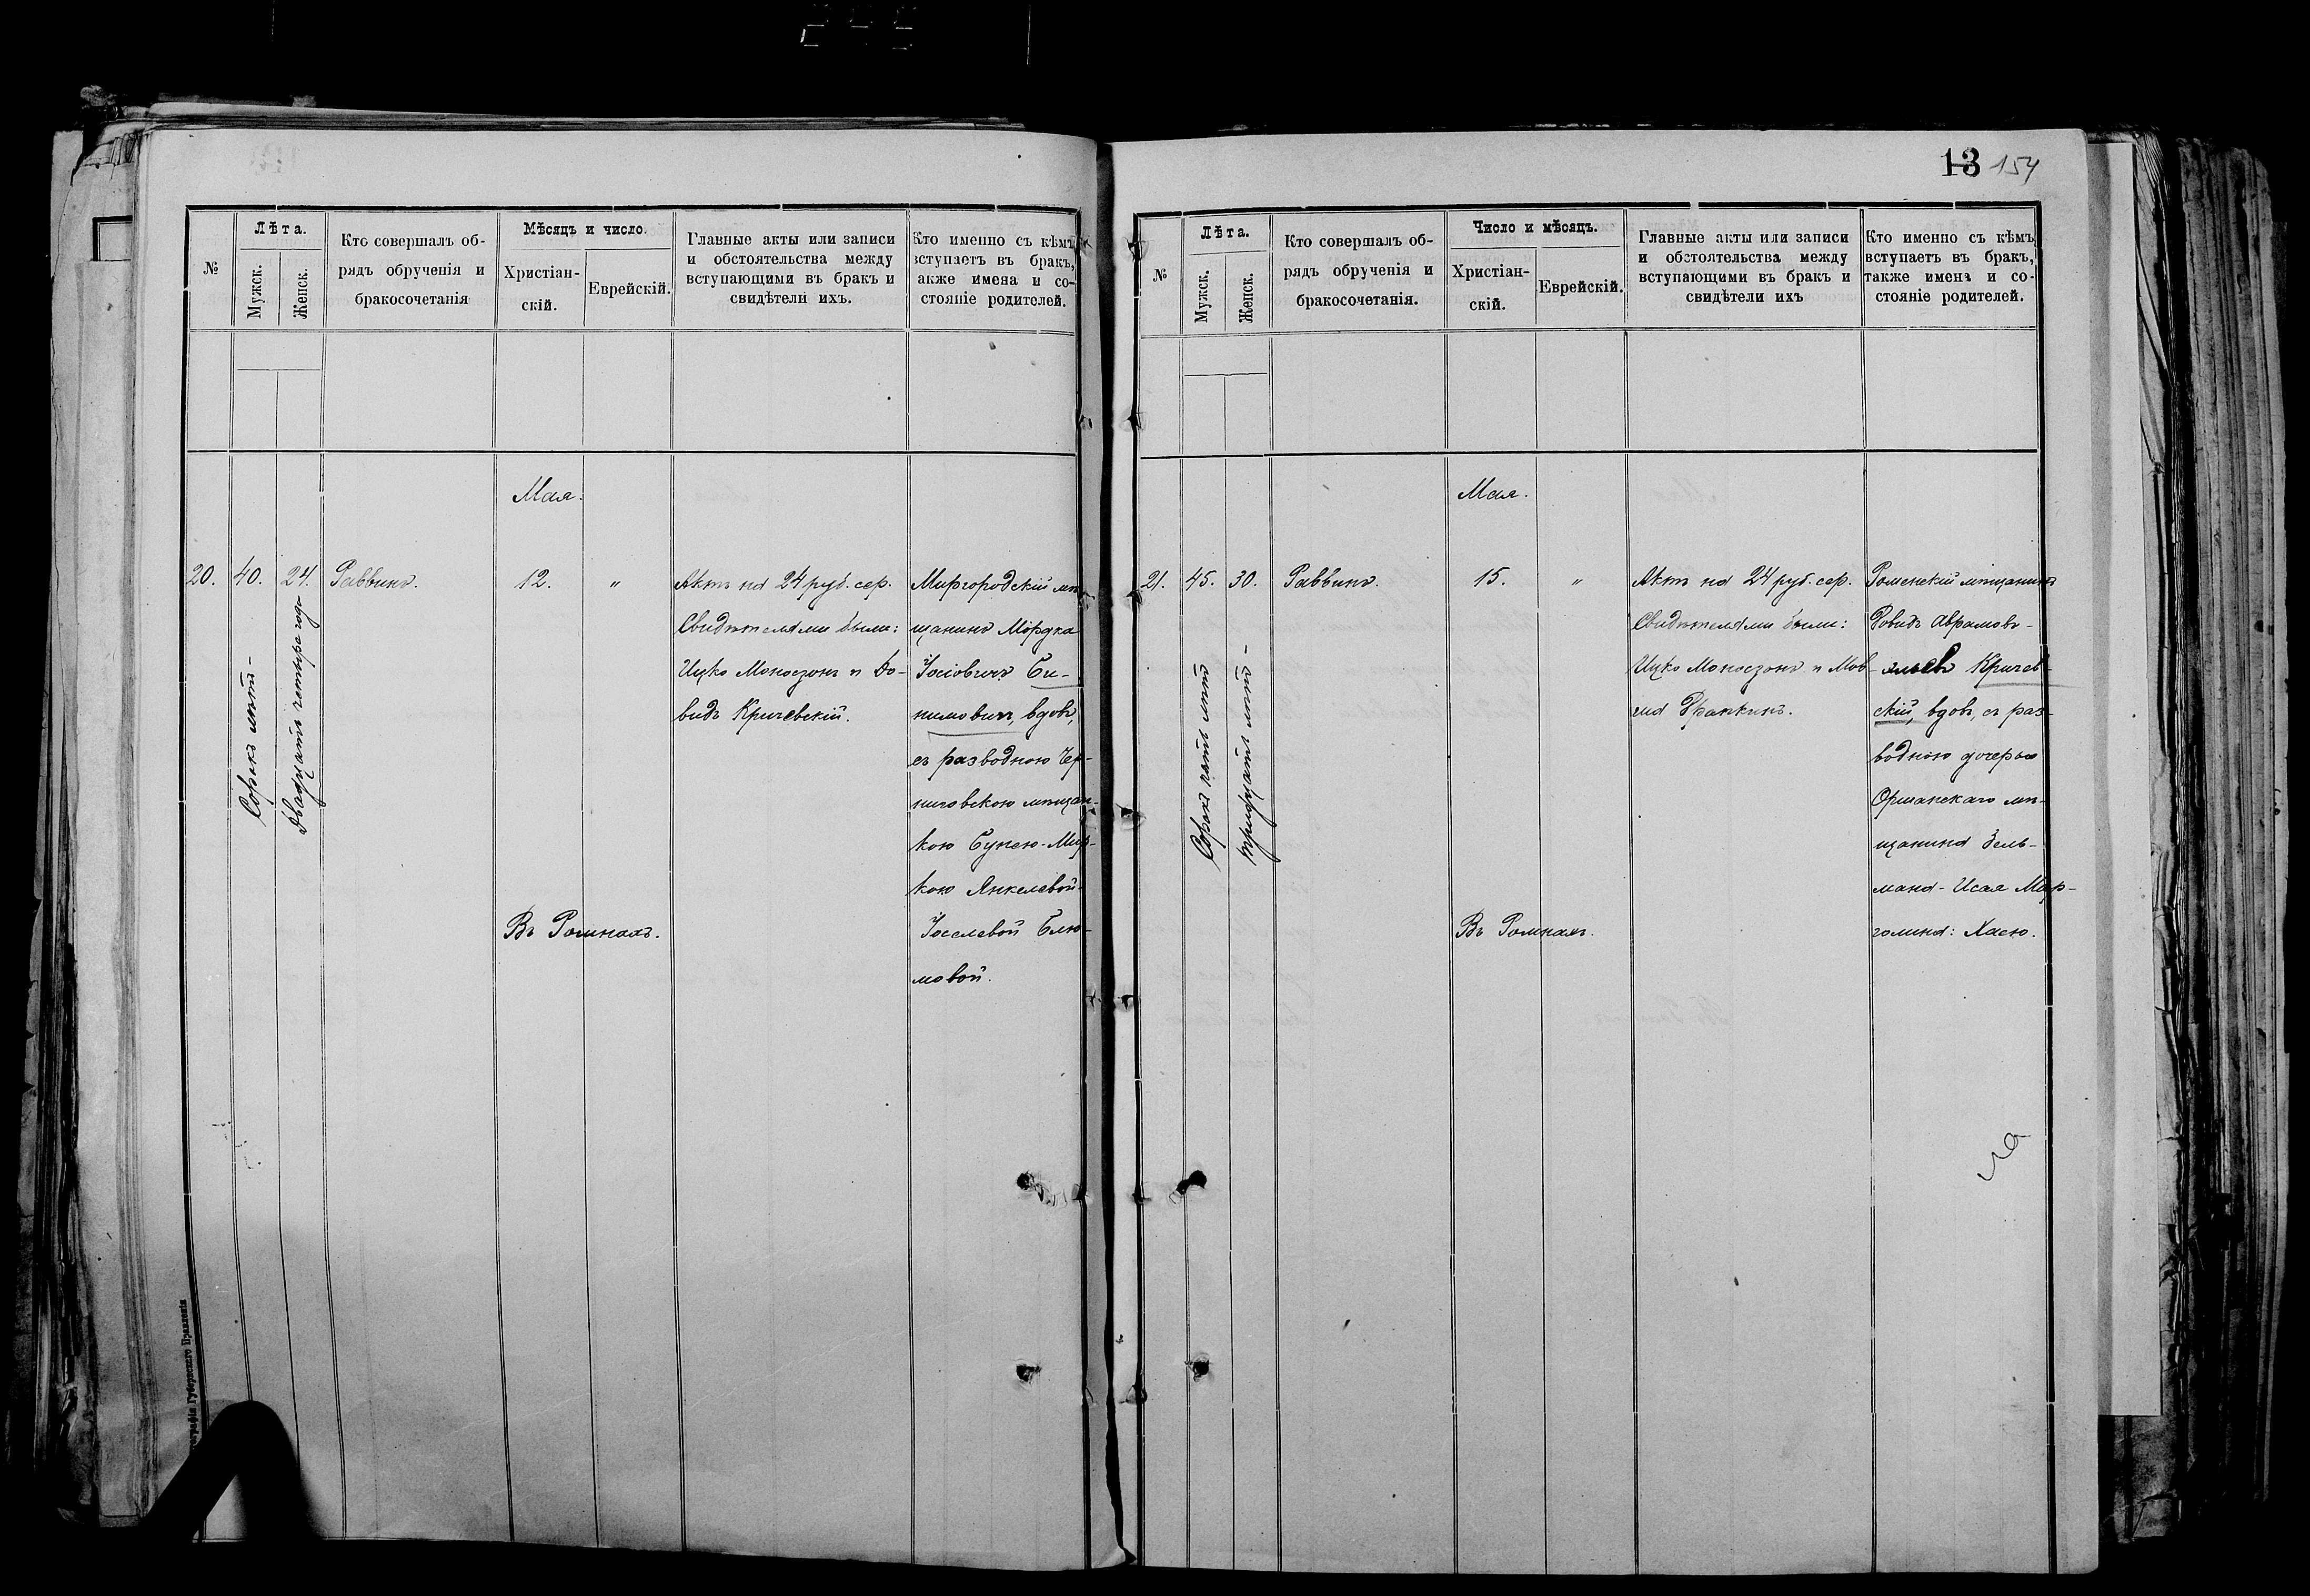 №
Лѣта.
Мужск.
Женск.
Кто совершалъ об-
рядъ обрученія и
бракосочетанія
Мѣсяцъ и число.
Христіан-
скій.
Еврейскій.
Главные акты или записи
и обстоятельства между
вступающими въ бракъ и
свидѣтели ихъ.
Кто именно съ кѣмъ
вступаетъ въ бракъ,
акже имена и со-
стояніе родителей.
Мая.
20.
40.
Сорокъ лѣтъ-
24.
двадцать четыре года
Раввинъ.
12.
"
Въ Ромнахъ.
Актъ на 24 руб. сер.
Свидѣтелями были:
Ицко Моносзонъ и До-
видъ Кричевскій.
Миргородскій мѣ-
щанинъ Мордка
Іосіовичъ Би-
нимовичъ, вдов.,
съ разводною Чер-
ниговскою мѣщан-
кою Бунею-Мир-
кою Янкелевой-
Іоселевой Блю-
мовой.
13 154
№
Лѣта.
Мужск.
Женск.
Кто совершалъ об-
рядъ обрученія и
бракосочетанія.
Число и мѣсяцъ.
Христіан-
скій.
Еврейскій.
Главные акты или записи
и обстоятельства между
вступающими въ бракъ и
свидѣтели ихъ
Кто именно съ кѣмъ
вступаетъ въ бракъ,
также имена и со-
стояніе родителей.
Мая.
21.
45.
Сорокъ пять лѣтъ
30.
тридцать лѣтъ-
Раввинъ.
15.
"
Въ Ромнахъ.
Актъ на 24 руб. сер.
Свидѣтелями были:
Ицко Моносзонъ и Мов-
ша Франкинъ.
Роменскій мѣщанинъ
Довидъ Аврамовъ-
Кричев-
скій, вдов., съ раз-
водною дочерью
Оршанскаго мѣ-
щанина Зель-
мана-Исая Мар-
голина: Хаею.